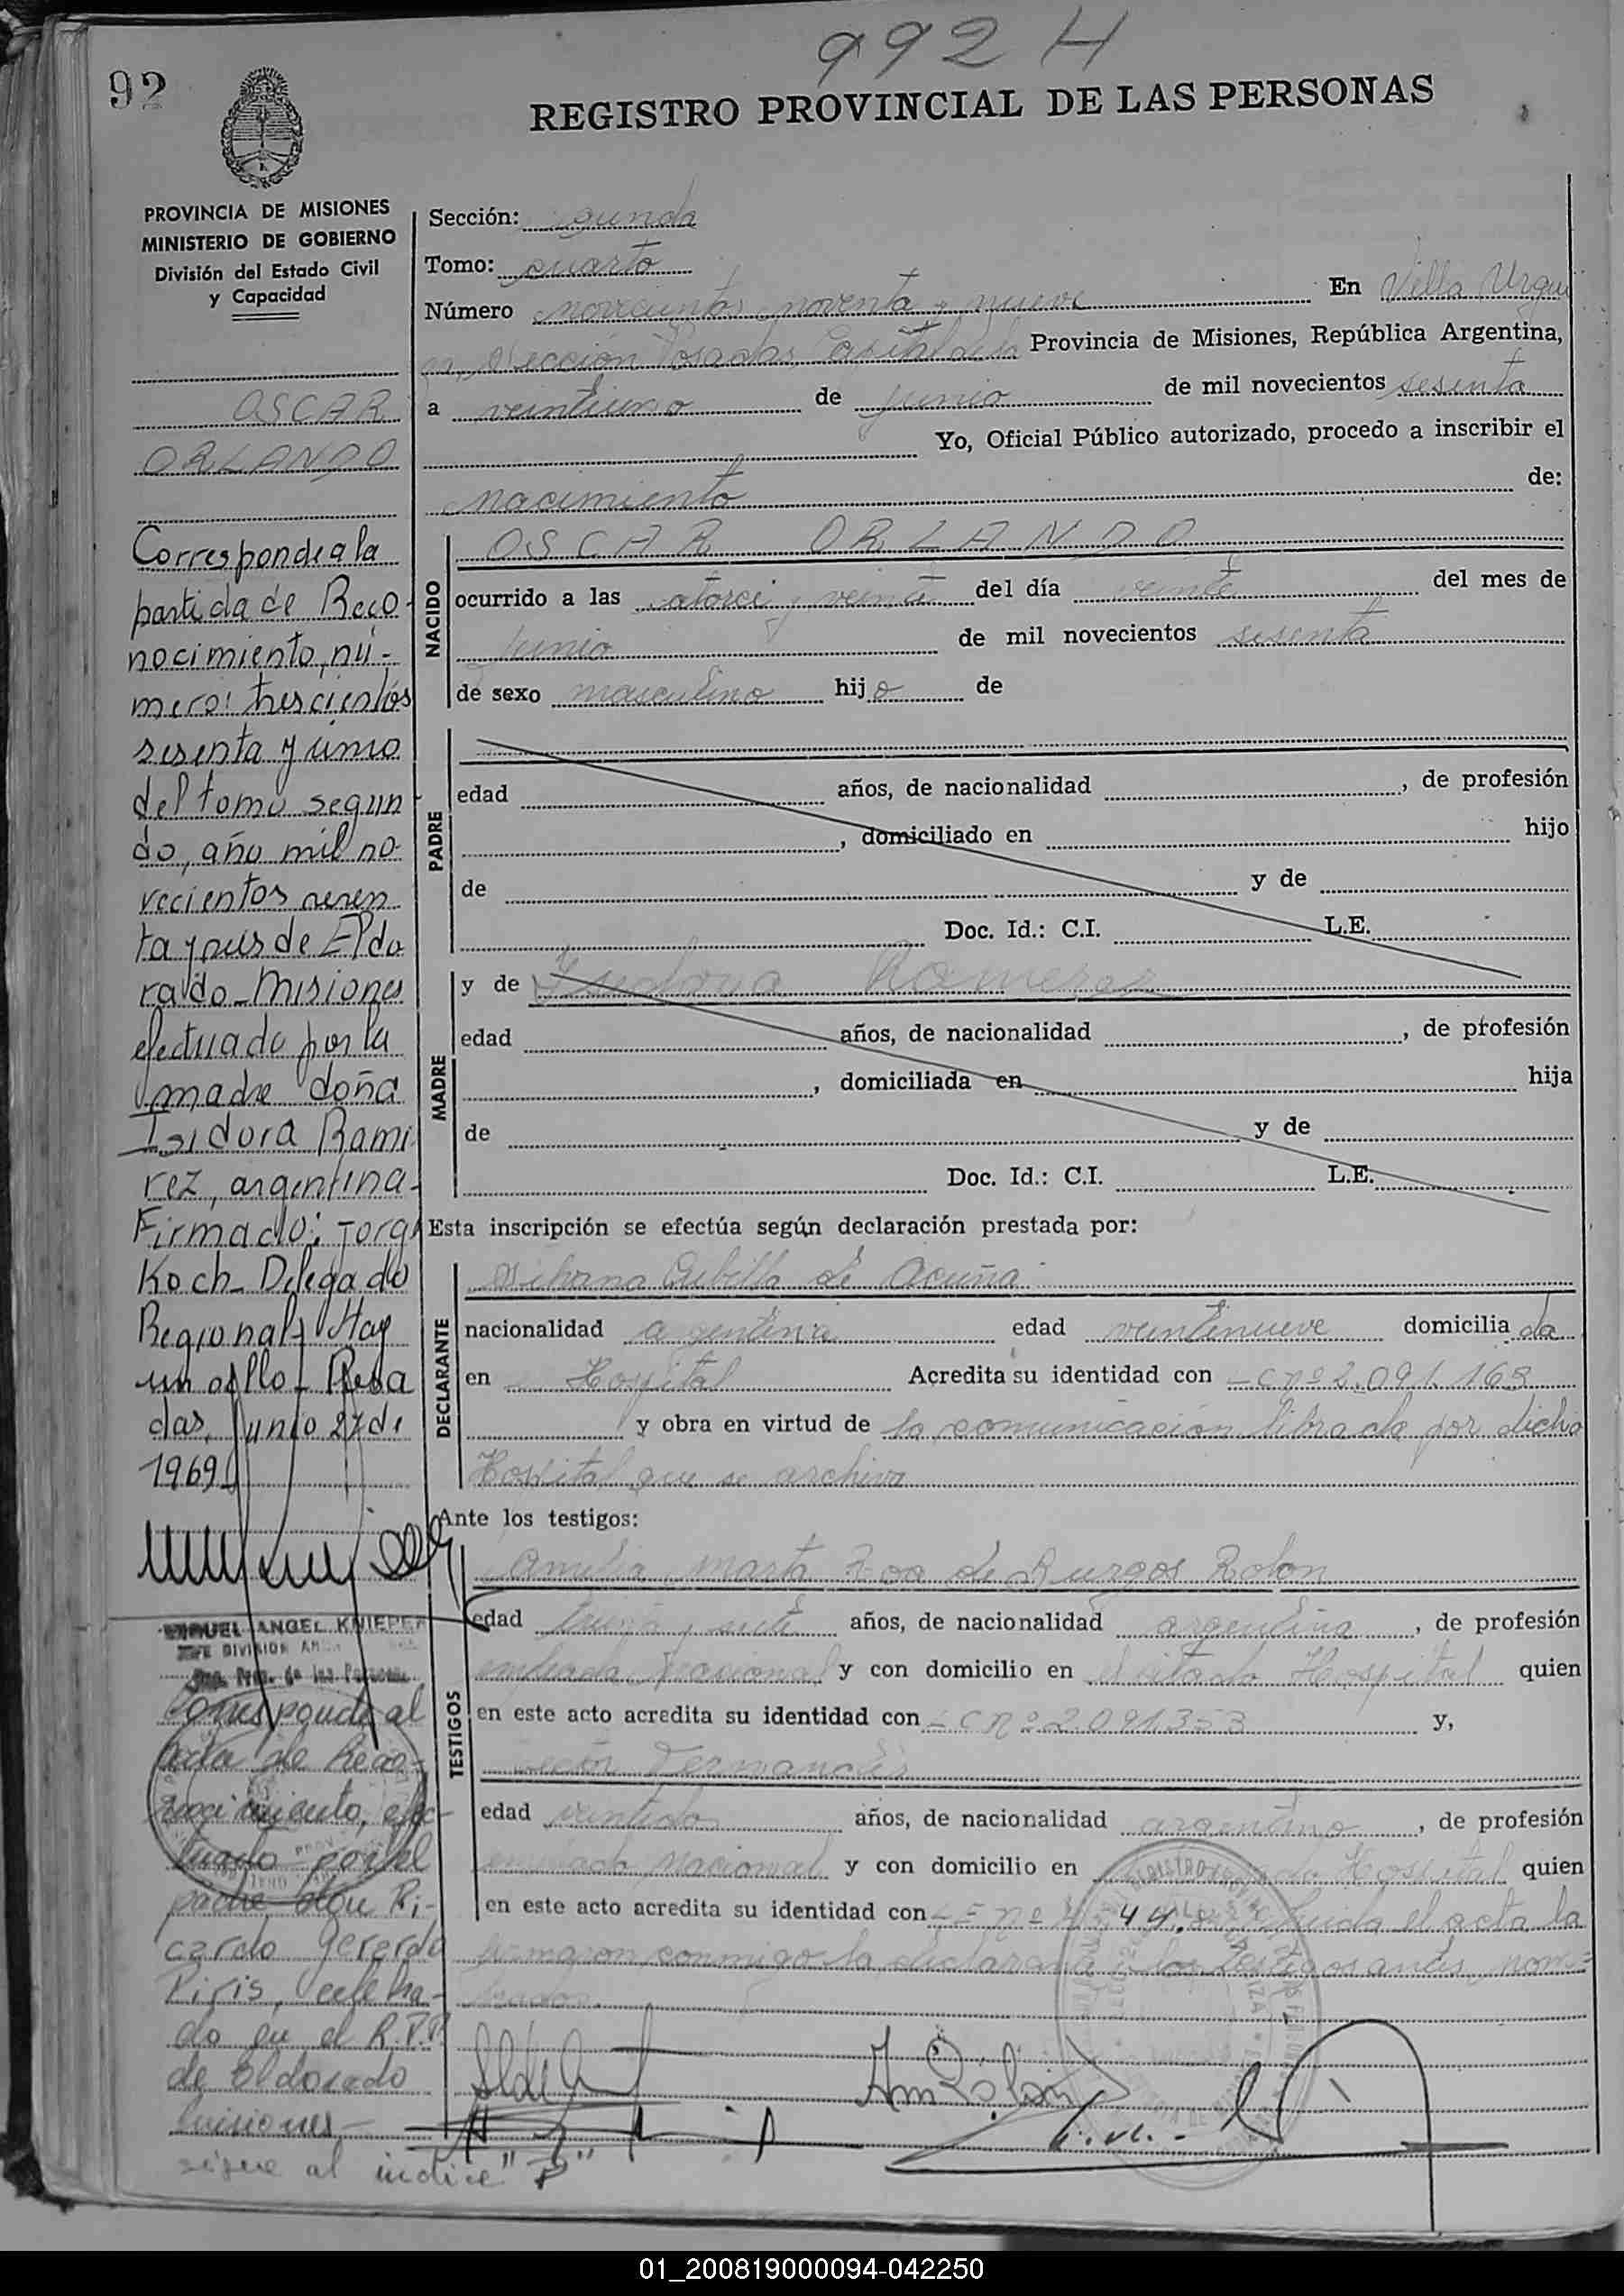 992 H
92
REGISTRO PROVINCIAL DE LAS PERSONAS
PROVINCIA DE MISIONES
MINISTERIO DE GOBIERNO
División del Estado Civil
y Capacidad
OSCAR
ORLANDO
Corresponde a la
partida de Reco-
nocimiento, nú-
mero: trescientos
sesenta y uno
del tomo segun
do, año mil no-
vecientos sesen
ta y seis de Eldo
rado - Misiones
efectuado por la
madre doña
Isidora Rami
rez, argentina-
Firmado: Jorge
Koch - Delegado
Regional - Hay
un sello - Posa
das, Junio 27 de
1969
MIGUEL ANGEL KNIEPER
JEFE DIVISION
Prov. de las Personas
Corresponde al
acta de Reco-
nocimiento, efec-
tuado por el
padre, Ri-
cardo Gererdo
Piris, celebra-
do en el R.P.P.
de Eldorado
Misiones -
sigue al indice "P"
Sección: segunda
Tomo: cuarto
Número novecientos noventa y nueve En Villa Urqui
za, Sección Posadas, Capital de la Provincia de Misiones, República Argentina,
a veintiuno de junio de mil novecientos sesenta
Yo, Oficial Público autorizado, procedo a inscribir el
nacimiento de:
NACIDO
OSCAR ORLANDO
ocurrido a las catorce y veinte del día veinte del mes de
junio de mil novecientos sesenta
de sexo masculino hijo de
PADRE
edad años, de nacionalidad , de profesión
, domiciliado en hijo
de y de
Doc. Id.: C.I. L.E.
MADRE
y de
edad años, de nacionalidad , de profesión
, domiciliada en hija
de y de
Doc. Id.: C.I. L.E.
Esta inscripción se efectúa según declaración prestada por:
DECLARANTE
Cubilla de Acuña
nacionalidad argentina edad veintinueve domiciliada
en Hospital Acredita su identidad con C nº 2.091.163
y obra en virtud de la comunicación librada por dicho
Hospital que se archiva
Ante los testigos:
TESTIGOS
Amelia Marta Roa de Burgos Rolon
edad treinta y siete años, de nacionalidad argentina , de profesión
empleada nacional y con domicilio en el citado Hospital quien
en este acto acredita su identidad con C nº 2091353 y,
edad veintidos años, de nacionalidad argentino , de profesión
empleado nacional y con domicilio en Hospital quien
en este acto acredita su identidad con nº 44. el acta la
firmaron conmigo la declarante y los testigos antes nom=
brados.
01_200819000094-042250